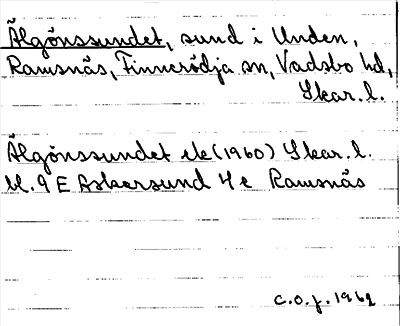 Älgönssundet, sund i Unden,
Ramsnäs, Finnerödja sn, Vadsbo hd,
Skar. l.
Älgönssundet ek (1960) Skar. l.
bl. 9 E Askersund 4 e Ramsnäs
C.O.J. 1962